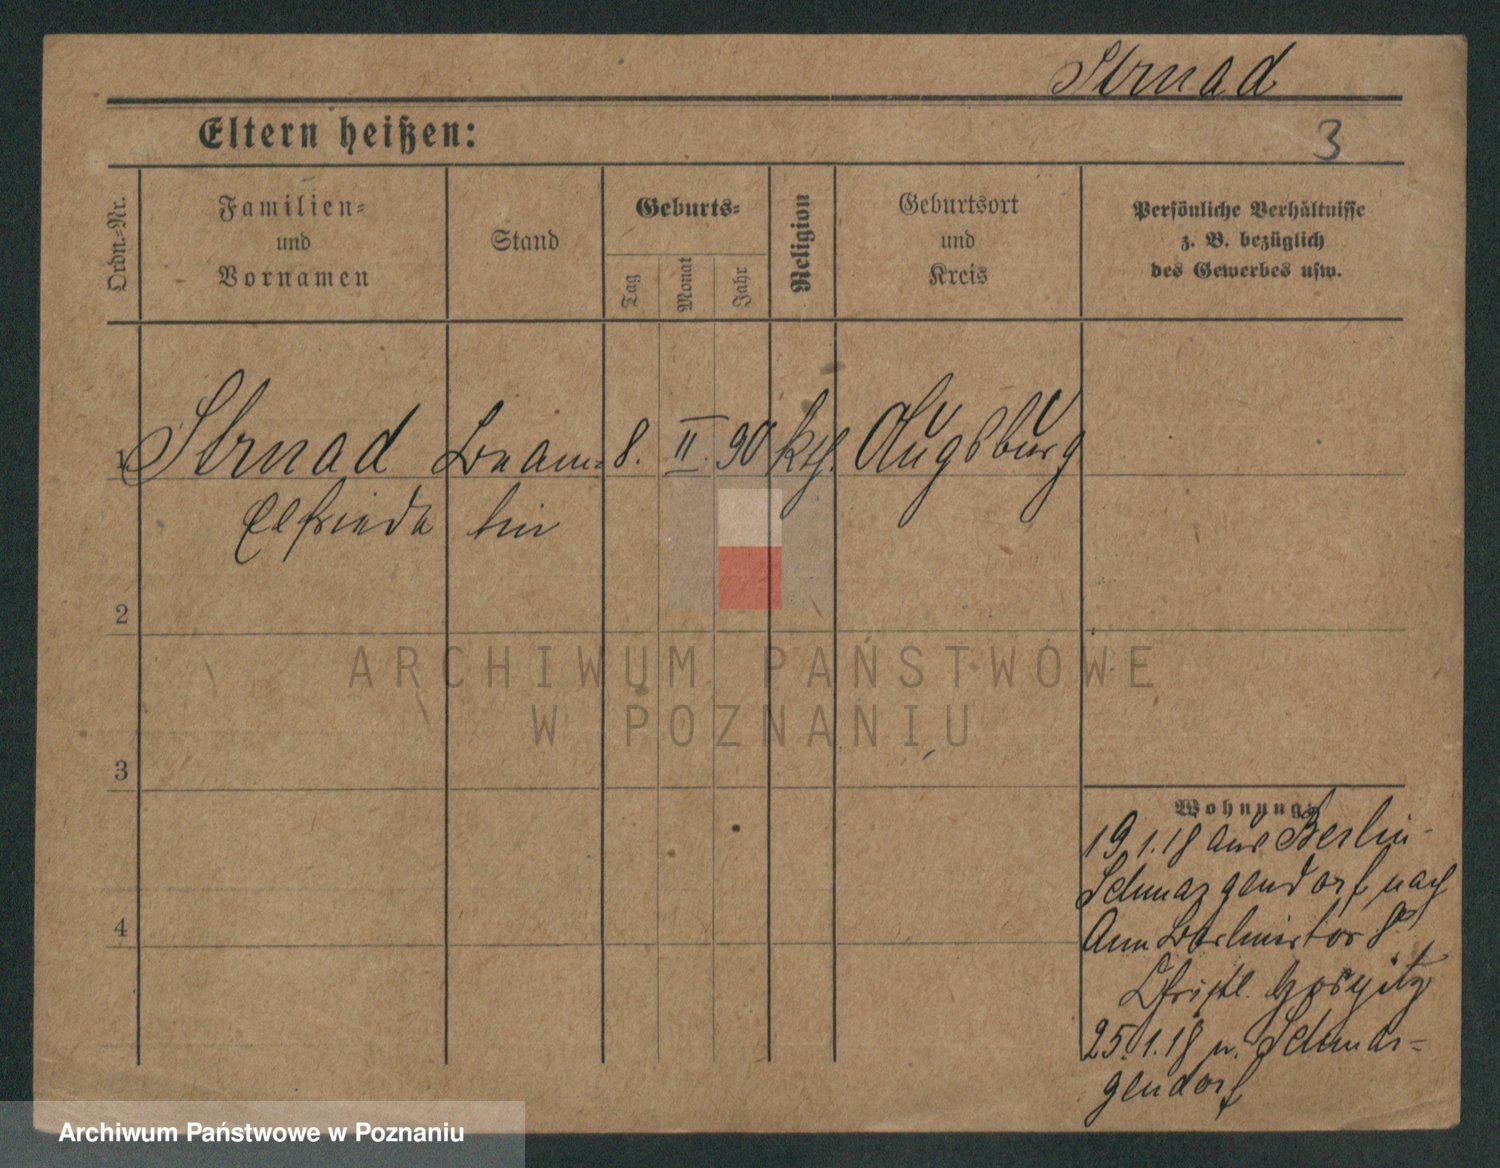 Strnad
Eltern heißen:
3
Ordn.-Nr.
Familien-
und
Vornamen
Stand
Geburts-
Tag
Monat
Jahr
Religion
Geburtsort
und
Kreis
Persönliche Verhältnisse
z. B. bezüglich
des Gewerbes usw.
1 Strnad Beam- 8. II. 90 kth. Augsburg
Elfriede tin
2
ARCHIWUM PAŃSTWOWE
W POZNANIU
3
Wohnung:
19.1.18 aus Berlin-
Schmargendorf nach
Am Berlinertor 8
4
Christl. Hospitz
25.1.18 n. Schmar-
gendorf
Archiwum Państwowe w Poznaniu